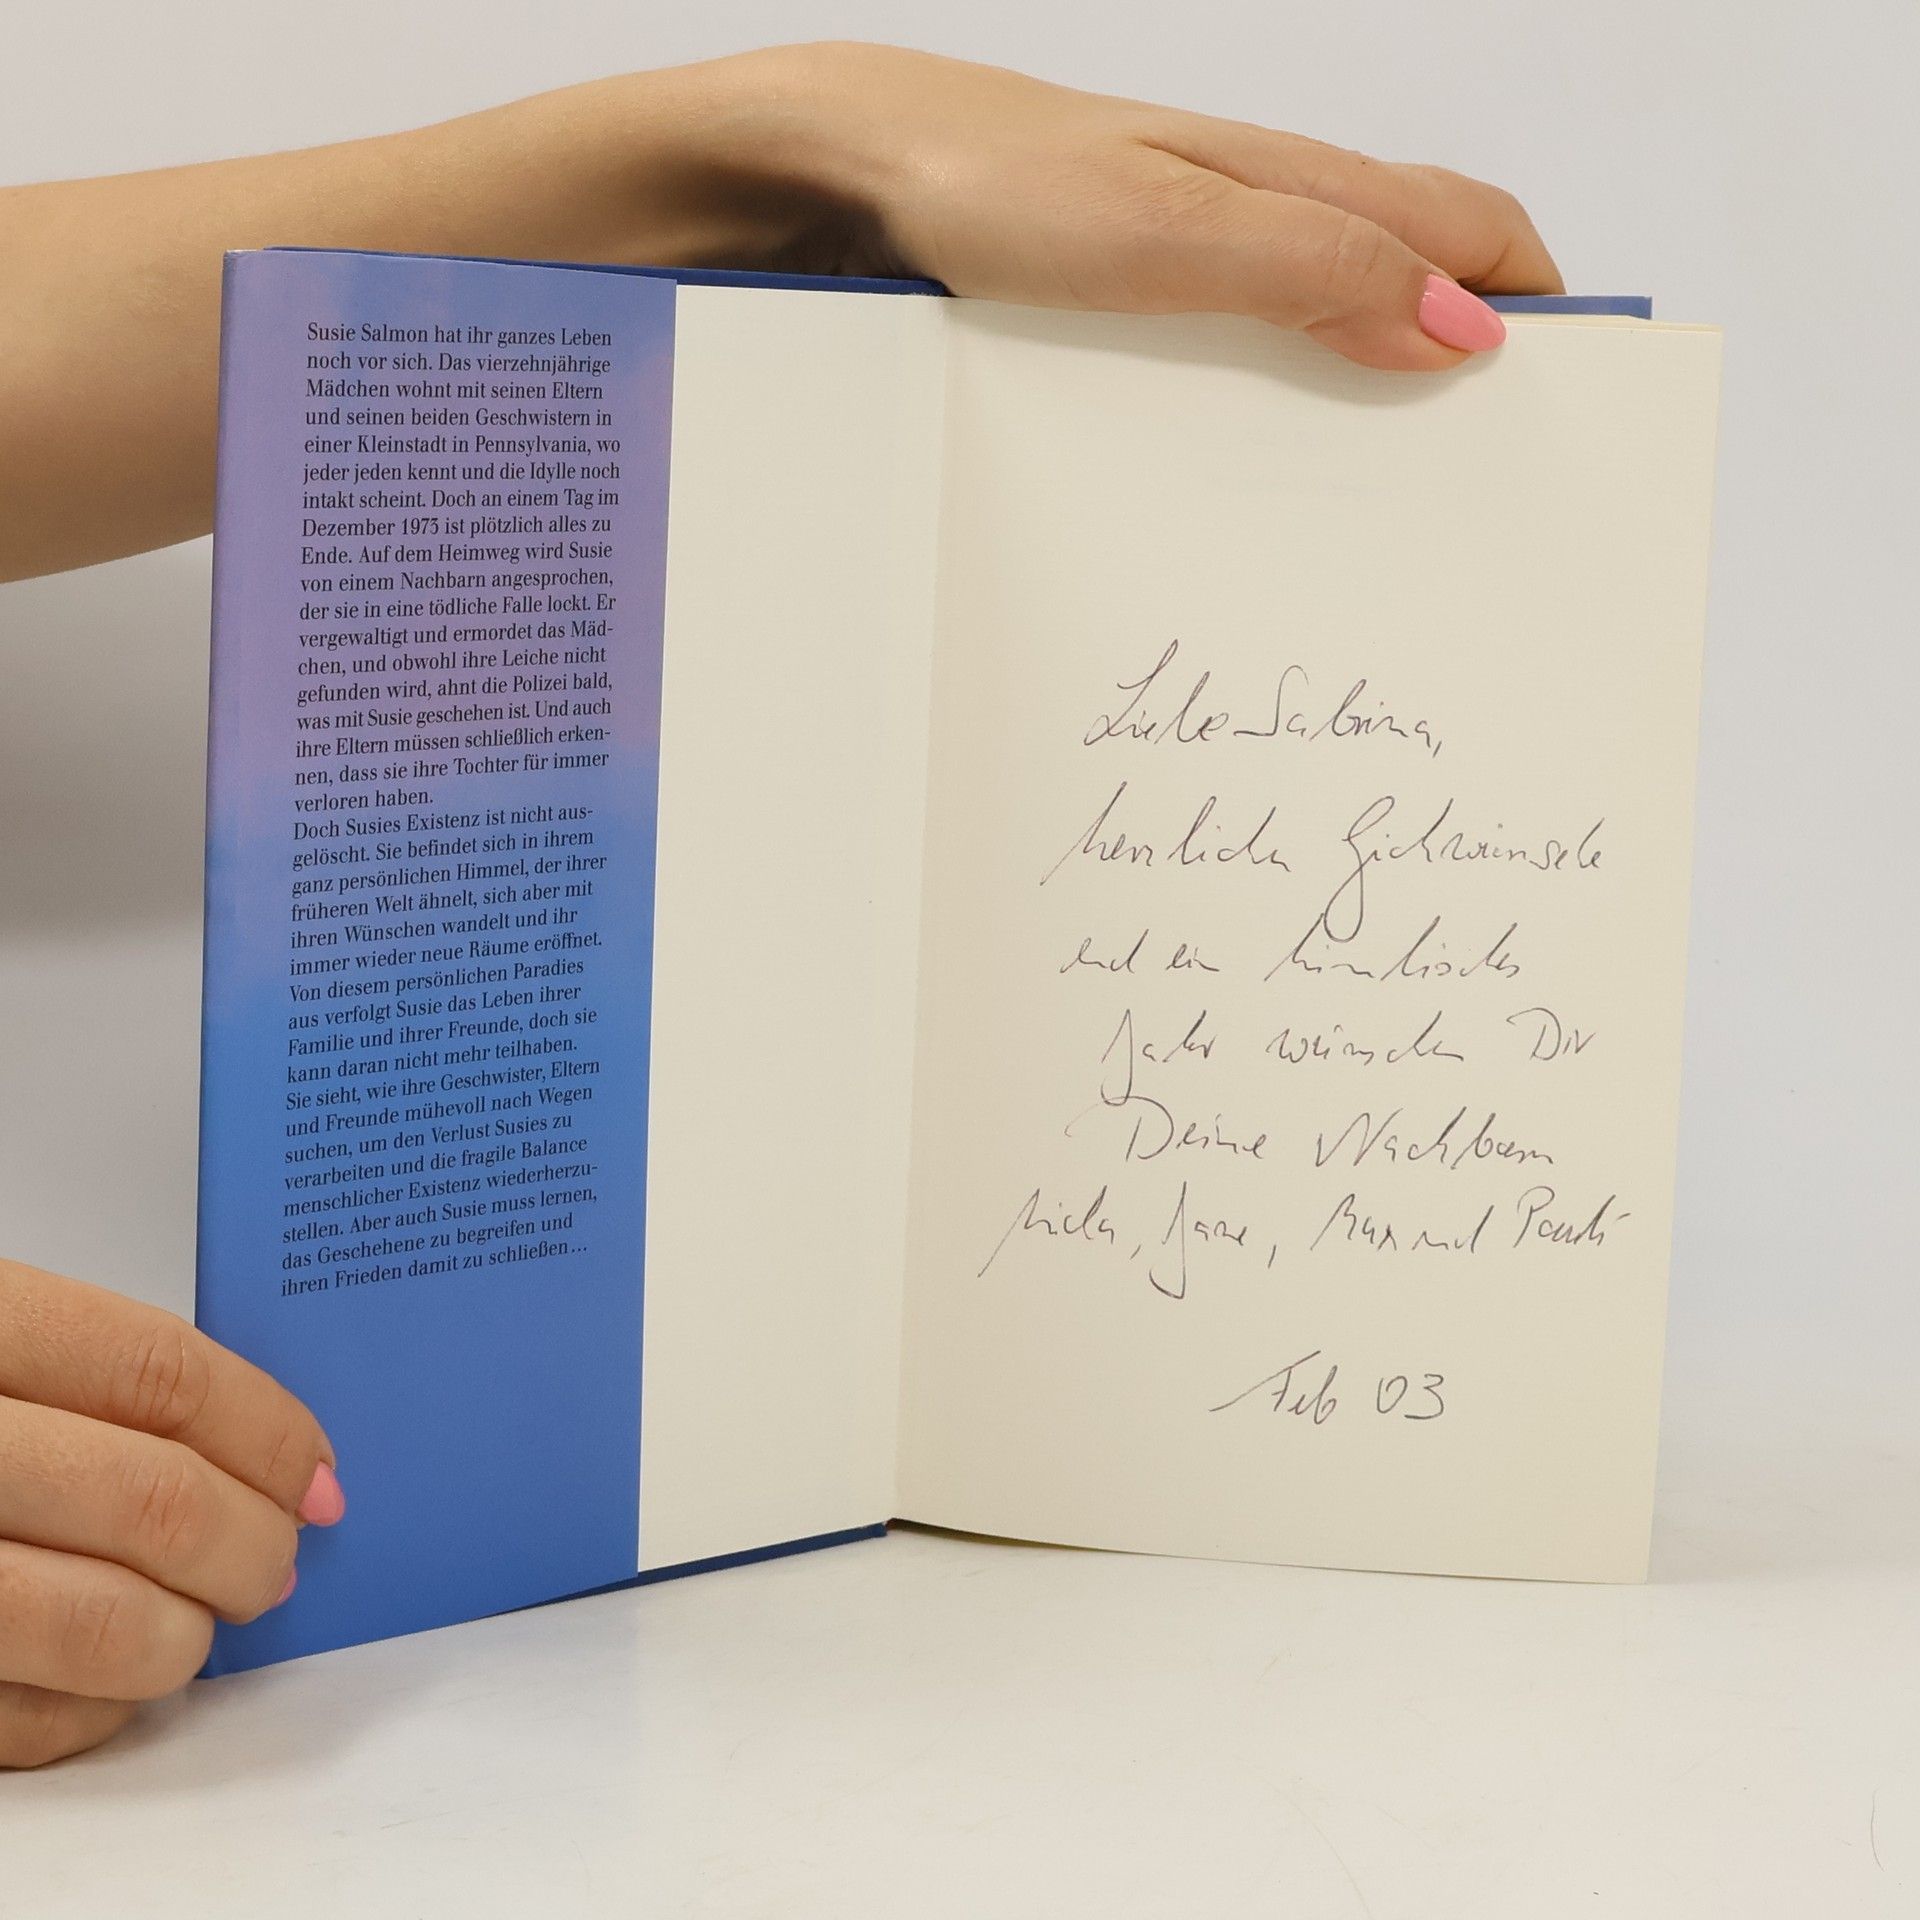 Susie Salmon hat ihr ganzes Leben
noch vor sich. Das vierzehnjährige
Mädchen wohnt mit seinen Eltern
und seinen beiden Geschwistern in
einer Kleinstadt in Pennsylvania, wo
jeder jeden kennt und die Idylle noch
intakt scheint. Doch an einem Tag im
Dezember 1973 ist plötzlich alles zu
Ende. Auf dem Heimweg wird Susie
von einem Nachbarn angesprochen,
der sie in eine tödliche Falle lockt. Er
vergewaltigt und ermordet das Mäd-
chen, und obwohl ihre Leiche nicht
gefunden wird, ahnt die Polizei bald,
was mit Susie geschehen ist. Und auch
ihre Eltern müssen schließlich erken-
nen, dass sie ihre Tochter für immer
verloren haben.
Doch Susies Existenz ist nicht aus-
gelöscht. Sie befindet sich in ihrem
ganz persönlichen Himmel, der ihrer
früheren Welt ähnelt, sich aber mit
ihren Wünschen wandelt und ihr
immer wieder neue Räume eröffnet.
Von diesem persönlichen Paradies
aus verfolgt Susie das Leben ihrer
Familie und ihrer Freunde, doch sie
kann daran nicht mehr teilhaben.
Sie sieht, wie ihre Geschwister, Eltern
und Freunde mühevoll nach Wegen
suchen, um den Verlust Susies zu
verarbeiten und die fragile Balance
menschlicher Existenz wiederherzu-
stellen. Aber auch Susie muss lernen,
das Geschehene zu begreifen und
ihren Frieden damit zu schließen...
Liebe Sabrina,
herzliche Glückwünsche
und ein himmlisches
Jahr wünschen Dir
Deine Nachbarn
, Max und
Feb 03